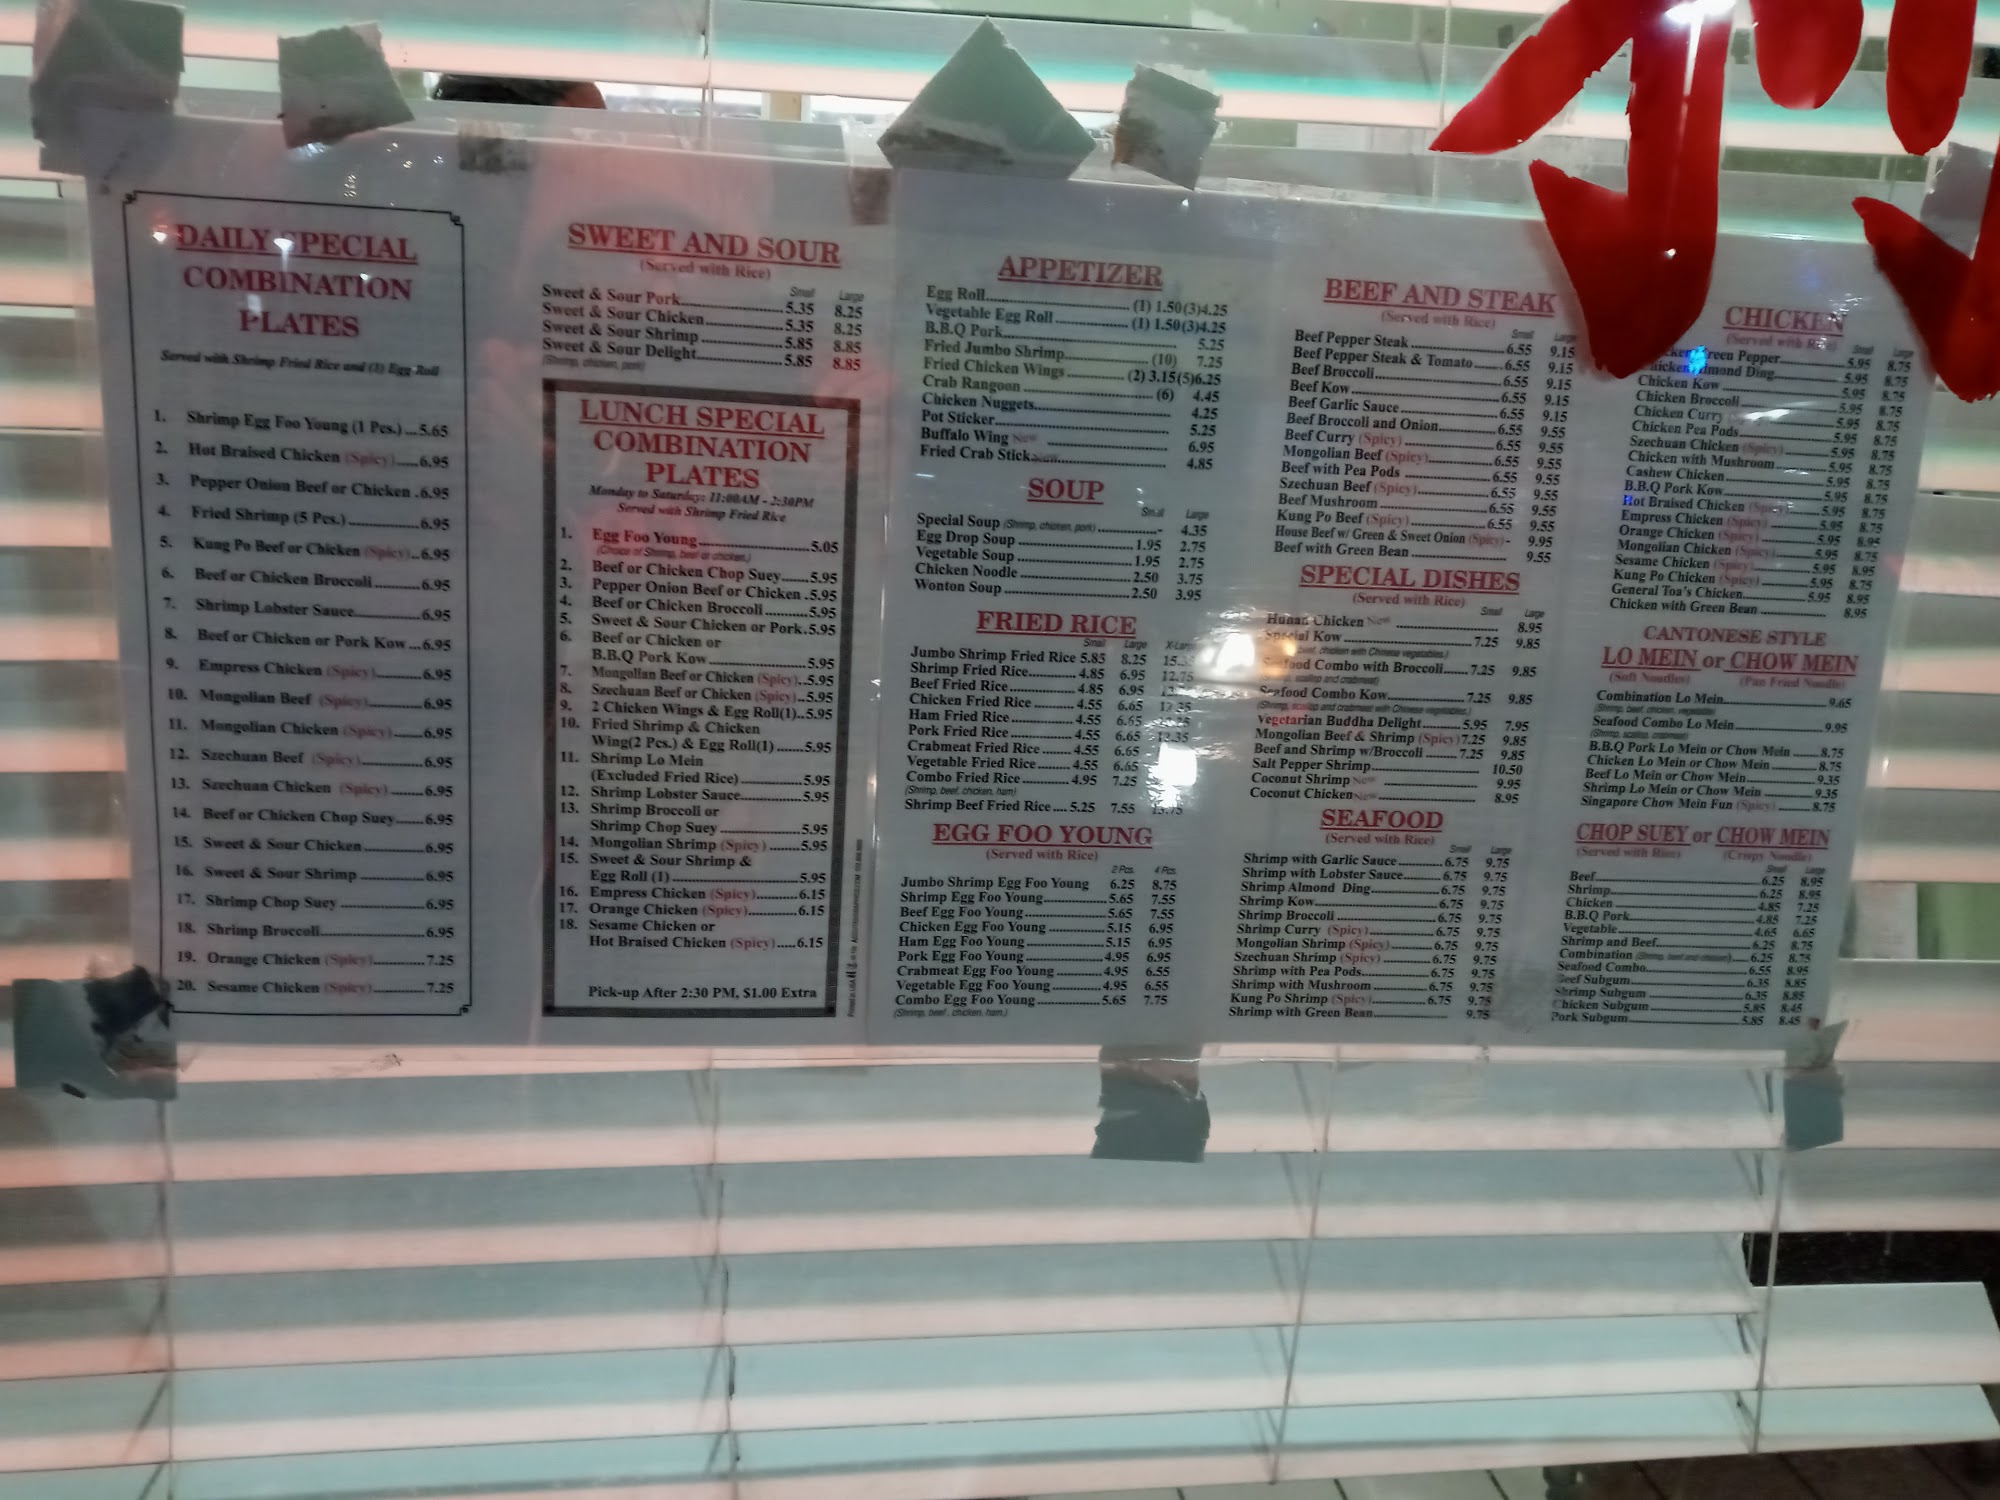 DAILY SPECIAL
COMBINATION
PLATES
Served with Shrimp Fried Rice and (1) Egg Roll
1. Shrimp Egg Foo Young (1 Pcs.)...5.65
2. Hot Braised Chicken (Spicy).....6.95
3. Pepper Onion Beef or Chicken .6.95
4. Fried Shrimp (5 Pcs.)..............6.95
5. Kung Po Beef or Chicken (Spicy)..6.95
6. Beef or Chicken Broccoli ...........6.95
7. Shrimp Lobster Sauce...............6.95
8. Beef or Chicken or Pork Kow...6.95
9. Empress Chicken (Spicy)...........6.95
10. Mongolian Beef (Spicy)............6.95
11. Mongolian Chicken (Spicy).......6.95
12. Szechuan Beef (Spicy).............6.95
13. Szechuan Chicken (Spicy).........6.95
14. Beef or Chicken Chop Suey......6.95
15. Sweet & Sour Chicken..............6.95
16. Sweet & Sour Shrimp...............6.95
17. Shrimp Chop Suey ..................6.95
18. Shrimp Broccoli.......................6.95
19. Orange Chicken (Spicy).............7.25
20. Sesame Chicken (Spicy).............7.25
SWEET AND SOUR
(Served with Rice)
Small Large
Sweet & Sour Pork..................5.35 8.25
Sweet & Sour Chicken.............5.35 8.25
Sweet & Sour Shrimp..............5.85 8.85
Sweet & Sour Delight..............5.85 8.85
(Shrimp, chicken, pork)
LUNCH SPECIAL
COMBINATION
PLATES
Monday to Saturday: 11:00AM - 2:30PM
Served with Shrimp Fried Rice
1. Egg Foo Young....................5.05
(Choice of Shrimp, beef or chicken.)
2. Beef or Chicken Chop Suey......5.95
3. Pepper Onion Beef or Chicken .5.95
4. Beef or Chicken Broccoli..........5.95
5. Sweet & Sour Chicken or Pork.5.95
6. Beef or Chicken or
B.B.Q Pork Kow...................5.95
7. Mongolian Beef or Chicken (Spicy)..5.95
8. Szechuan Beef or Chicken (Spicy)...5.95
9. 2 Chicken Wings & Egg Roll(1)..5.95
10. Fried Shrimp & Chicken
Wing(2 Pcs.) & Egg Roll(1) ......5.95
11. Shrimp Lo Mein
(Excluded Fried Rice) ..............5.95
12. Shrimp Lobster Sauce..............5.95
13. Shrimp Broccoli or
Shrimp Chop Suey .................5.95
14. Mongolian Shrimp (Spicy) .......5.95
15. Sweet & Sour Shrimp &
Egg Roll (1) ...........................5.95
16. Empress Chicken (Spicy)..........6.15
17. Orange Chicken (Spicy)............6.15
18. Sesame Chicken or
Hot Braised Chicken (Spicy).....6.15
Pick-up After 2:30 PM, $1.00 Extra
APPETIZER
Egg Roll..............................(1) 1.50(3)4.25
Vegetable Egg Roll ...............(1) 1.50(3)4.25
B.B.Q Pork.............................. 5.25
Fried Jumbo Shrimp...............(10) 7.25
Fried Chicken Wings ............(2) 3.15(5)6.25
Crab Rangoon .......................(6) 4.45
Chicken Nuggets..................... 4.25
Pot Sticker.............................. 5.25
Buffalo Wing New .................. 6.95
Fried Crab Stick New............... 4.85
SOUP
Small Large
Special Soup (Shrimp, chicken, pork) ............- 4.35
Egg Drop Soup ......................1.95 2.75
Vegetable Soup ......................1.95 2.75
Chicken Noodle .....................2.50 3.75
Wonton Soup .........................2.50 3.95
FRIED RICE
Small Large
Jumbo Shrimp Fried Rice 5.85 8.25
Shrimp Fried Rice............4.85 6.95 12.75
Beef Fried Rice................4.85 6.95
Chicken Fried Rice...........4.55 6.65
Ham Fried Rice................4.55 6.65
Pork Fried Rice................4.55 6.65 12.35
Crabmeat Fried Rice.........4.55 6.65
Vegetable Fried Rice.........4.55 6.65
Combo Fried Rice ............4.95 7.25
(Shrimp, beef, chicken, ham)
Shrimp Beef Fried Rice.... 5.25 7.55
EGG FOO YOUNG
(Served with Rice)
2 Pcs. 4 Pcs.
Jumbo Shrimp Egg Foo Young 6.25 8.75
Shrimp Egg Foo Young...........5.65 7.55
Beef Egg Foo Young...............5.65 7.55
Chicken Egg Foo Young .........5.15 6.95
Ham Egg Foo Young ..............5.15 6.95
Pork Egg Foo Young ..............4.95 6.95
Crabmeat Egg Foo Young .......4.95 6.55
Vegetable Egg Foo Young .......4.95 6.55
Combo Egg Foo Young...........5.65 7.75
(Shrimp, beef, chicken, ham.)
BEEF AND STEAK
(Served with Rice)
Small Large
Beef Pepper Steak ..................6.55 9.15
Beef Pepper Steak & Tomato ....6.55 9.15
Beef Broccoli.........................6.55 9.15
Beef Kow..............................6.55 9.15
Beef Garlic Sauce ..................6.55 9.15
Beef Broccoli and Onion..........6.55 9.55
Beef Curry (Spicy)..................6.55 9.55
Mongolian Beef (Spicy)...........6.55 9.55
Beef with Pea Pods ................6.55 9.55
Szechuan Beef (Spicy).............6.55 9.55
Beef Mushroom .....................6.55 9.55
Kung Po Beef (Spicy) .............6.55 9.55
House Beef w/ Green & Sweet Onion (Spicy)- 9.95
Beef with Green Bean ............. 9.55
SPECIAL DISHES
(Served with Rice)
Small Large
Hunan Chicken New ................ 8.95
Special Kow ..........................7.25 9.85
beef, chicken with Chinese vegetables.)
Seafood Combo with Broccoli......7.25 9.85
scallop and crabmeat)
Seafood Combo Kow................7.25 9.85
(Shrimp, scallop and crabmeat with Chinese vegetables.)
Vegetarian Buddha Delight.......5.95 7.95
Mongolian Beef & Shrimp (Spicy)7.25 9.85
Beef and Shrimp w/Broccoli .....7.25 9.85
Salt Pepper Shrimp................. 10.50
Coconut Shrimp New ............... 9.95
Coconut Chicken New .............. 8.95
SEAFOOD
(Served with Rice)
Small Large
Shrimp with Garlic Sauce..........6.75 9.75
Shrimp with Lobster Sauce........6.75 9.75
Shrimp Almond Ding...............6.75 9.75
Shrimp Kow...........................6.75 9.75
Shrimp Broccoli .....................6.75 9.75
Shrimp Curry (Spicy)..............6.75 9.75
Mongolian Shrimp (Spicy) .......6.75 9.75
Szechuan Shrimp (Spicy) .........6.75 9.75
Shrimp with Pea Pods..............6.75 9.75
Shrimp with Mushroom ...........6.75 9.75
Kung Po Shrimp (Spicy)...........6.75 9.75
Shrimp with Green Bean........... 9.75
CHICKEN
(Served with Rice)
Small Large
Green Pepper..............5.95 8.75
Almond Ding..............5.95 8.75
Chicken Kow .........................5.95 8.75
Chicken Broccoli ....................5.95 8.75
Chicken Curry .......................5.95 8.75
Chicken Pea Pods ...................5.95 8.75
Szechuan Chicken (Spicy) ........5.95 8.75
Chicken with Mushroom...........5.95 8.75
Cashew Chicken .....................5.95 8.75
B.B.Q Pork Kow.....................5.95 8.75
Hot Braised Chicken (Spicy) .....5.95 8.75
Empress Chicken (Spicy)..........5.95 8.75
Orange Chicken (Spicy) ...........5.95 8.95
Mongolian Chicken (Spicy).......5.95 8.75
Sesame Chicken (Spicy) ..........5.95 8.95
Kung Po Chicken (Spicy) .........5.95 8.75
General Toa's Chicken.............5.95 8.95
Chicken with Green Bean ......... 8.95
CANTONESE STYLE
LO MEIN or CHOW MEIN
(Soft Noodles) (Pan Fried Noodle)
Combination Lo Mein...................9.65
(Shrimp, beef, chicken, vegetable)
Seafood Combo Lo Mein...............9.95
(Shrimp, scallop, crabmeat)
B.B.Q Pork Lo Mein or Chow Mein ......8.75
Chicken Lo Mein or Chow Mein .........8.75
Beef Lo Mein or Chow Mein..............9.35
Shrimp Lo Mein or Chow Mein ..........9.35
Singapore Chow Mein Fun (Spicy) ......8.75
CHOP SUEY or CHOW MEIN
(Served with Rice) (Crispy Noodle)
Small Large
Beef.....................................6.25 8.95
Shrimp..................................6.25 8.95
Chicken ................................4.85 7.25
B.B.Q Pork............................4.85 7.25
Vegetable..............................4.65 6.65
Shrimp and Beef.....................6.25 8.75
Combination (Shrimp, beef and chicken).....6.25 8.75
Seafood Combo......................6.55 8.95
Beef Subgum.........................6.35 8.85
Shrimp Subgum .....................6.35 8.85
Chicken Subgum ....................5.85 8.45
Pork Subgum.........................5.85 8.45